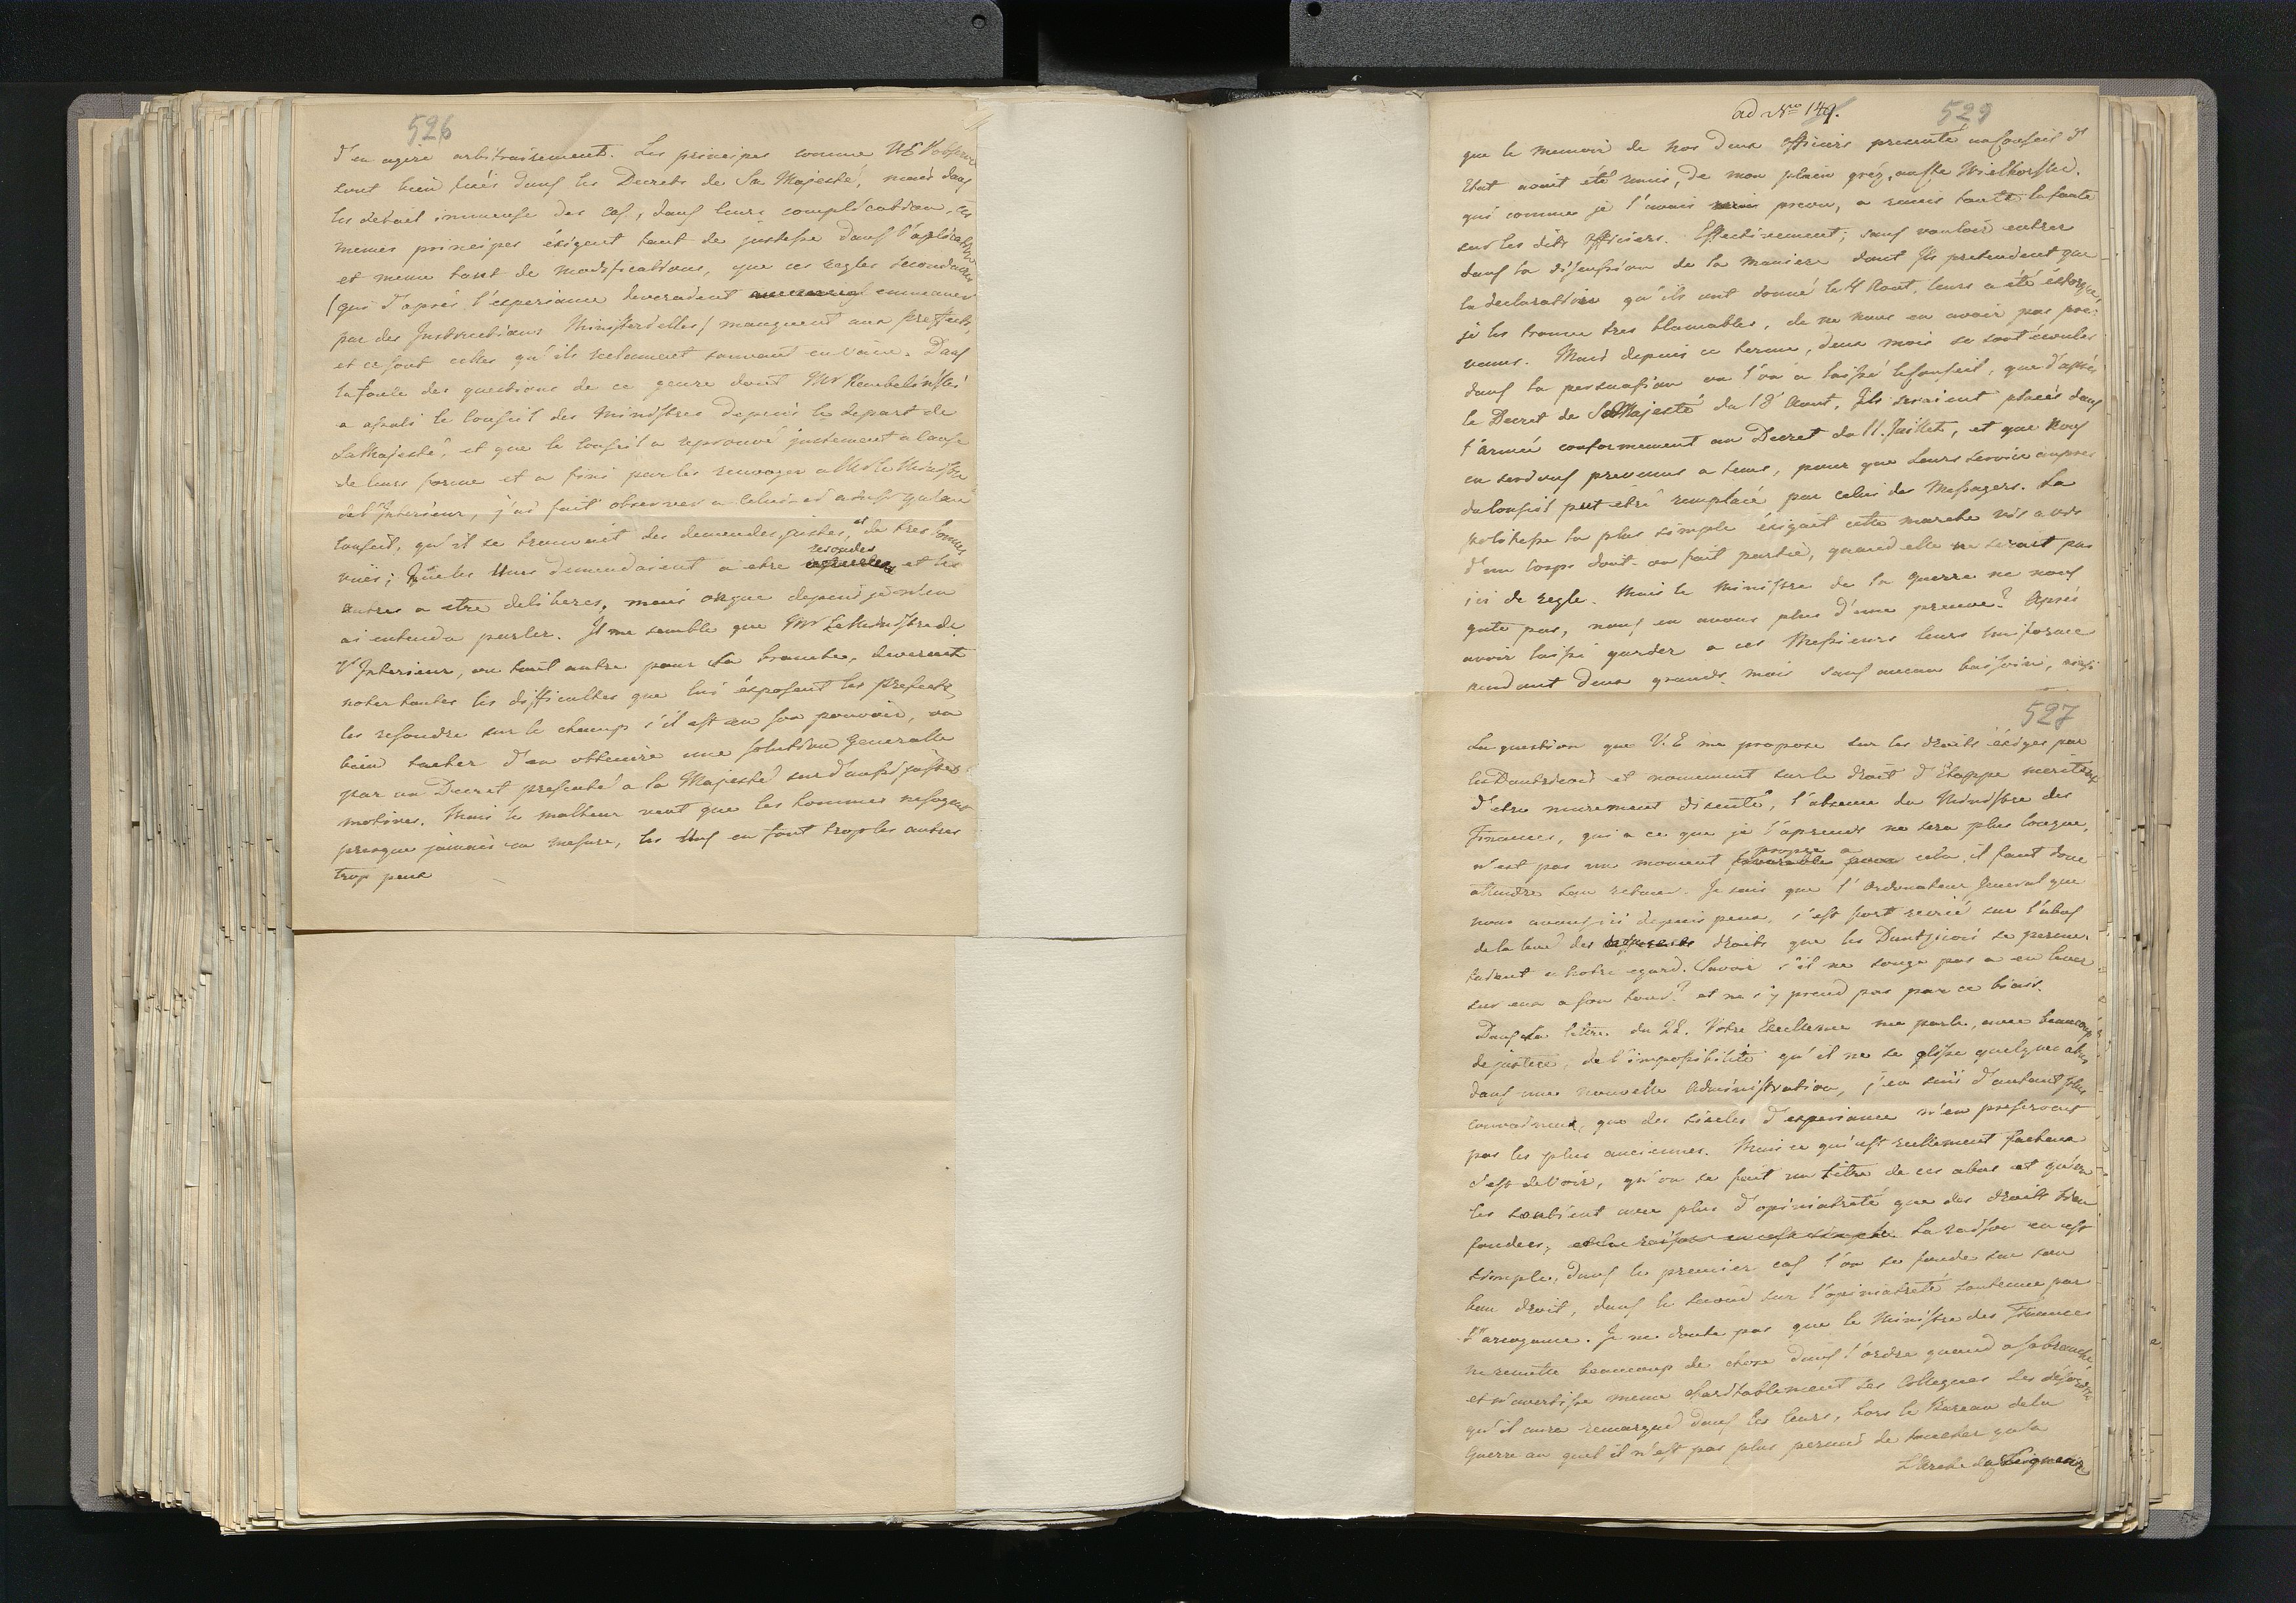 526
d'en agire arbitrairement. Les principes comme V.E. l'observe
sont bien fixés dans les Decrets de Sa Majesté, mais dans
les detail immense des cas, dans leurs complication, les
memes principes éxigent tant de justesse dans l'aplication
et meme tant de modifications, que ces regles secondaires
(qui d'après l'experiance deveraient emmaner
par des Instructions Ministerielles) manquent aux Prefects,
et ce sont celles qu'ils reclament souvant en vain. Dans
la foule des questions de ce genre dont Mr Rembelinski
a assali le Conseil des Ministres depuis le depart de
Sa Majesté, et que le Conseil a reprouvé justement a cause
de leurs forme et a fini par les renvoyer a Mr le Ministre
de l'Interieur, j'ai fait observer a celui-ci ainsi qu'au
Conseil, qu'il se trouvait des demendes justes, et de tres bonnes
vuës; que les unes demendaient a etre resoudes et les
autres a etre deliberes, mais onque depuis je n'en
ai entendu parler. Il me semble que Mr Le Ministre de
l'Interieur, ou tout autre pour sa branche, deverait
noter toutes les difficultes que lui éxposent les prefects,
les resoudre sur le champ s'il est en son pouvoir, ou
bien tacher d'en obtenire une solution Generalle
par un Decret presenté a Sa Majesté sur d'aussi justes
motives. Mais le malheur veut que les hommes ne soyent
presque jamais en mesure, les uns en font trop les autres
trop peux
ad Nro 149.
529
que le memoir de nos deux officiers presenté au Conseil d'
Etat avait été remis, de mon plein gré, au Cte Wielhorski.
qui comme je l'avais prevu, a remis toute la faute
sur les dits officiers. Effectivement; sans vouloir entrer
dans la discussion de la maniere dont Ils pretendent que
la declaration qu'ils ont donné le 4 Aout, leurs a été éxtorqué,
je les trouve tres blamables, de ne nous en avoir pas pre:
venus. Mais depuis ce terme, deux mois se sont écoulés
dans la persuasion ou l'on a laissé le Conseil, que d'après
le Decret de Sa Majesté du 18 Aout, Ils seraient placés dans
l'armée conformement au Decret du 11. Juillet, et que Nous
en serions prevenus a tems, pour que leurs service aupres
du Conseil put etre remplacé par celui des Messagers. La
politesse la plus simple éxigait cette marche vis a vis
d'un Corps dont on fait partie, quand elle ne serait pas
ici de regle. Mais le Ministre de la Guerre ne nous
gate pas, nous en avons plus d'une preuve? Après
avoir laissé garder a ces Messieurs leurs uniforme
pendant deux grands mois sans aucun baisoin, ainsi
527
La question que V.E me propose sur les droits éxiges par
les Dantzicois et nomement sur le droit d'Etappe merite
d'etre murement discuté, l'absence du Ministre des
Finances, qui a ce que je l'aprends ne sera plus longue,
n'est pas un moment propre a cela, il faut donc
attendre son retour. Je sais que l'Ordonateur General que
nous avons ici depuis peu, s'est fort recrié sur l'abus
de la levé des droits que les Dantzicois se perme:
taient a notre egard. Savoir s'il ne songe pas a en lever
sur eux a son tour? et ne s'y prend pas par ce biais.
Dans la lettre du 22. Votre Excellence me parle, avec beaucoup
de justece, de l'impossibilité qu'il ne se glisse quelques abus
dans une nouvelle administration, j'en suis d'autant plus
convaincu, que des siecles d'experiance n'en preservent
pas les plus anciennes. Mais ce qu'est reellement facheux
c'est de voir, qu'on se fait un titre de ces abus et qu'on
les soutient avec plus d'opiniatreté que des droits bien
fondes, et la raison en est simple. La raison en est
simple, dans le premier cas l'on se fonde sur son
bon droit, dans le second sur l'opiniatreté soutenue par
l'arrogance. Je ne doute pas que le Ministre des Finances
ne remette beaucoup de chose dans l'ordre quand a sa branche
et n'avertisse meme charitablement ses Collegues des désordres
qu'il aura remarqué dans les leurs, hors le Bureau de la
Guerre au quel il n'est pas plus permis de toucher qu'a
L'Arche du Seigneur